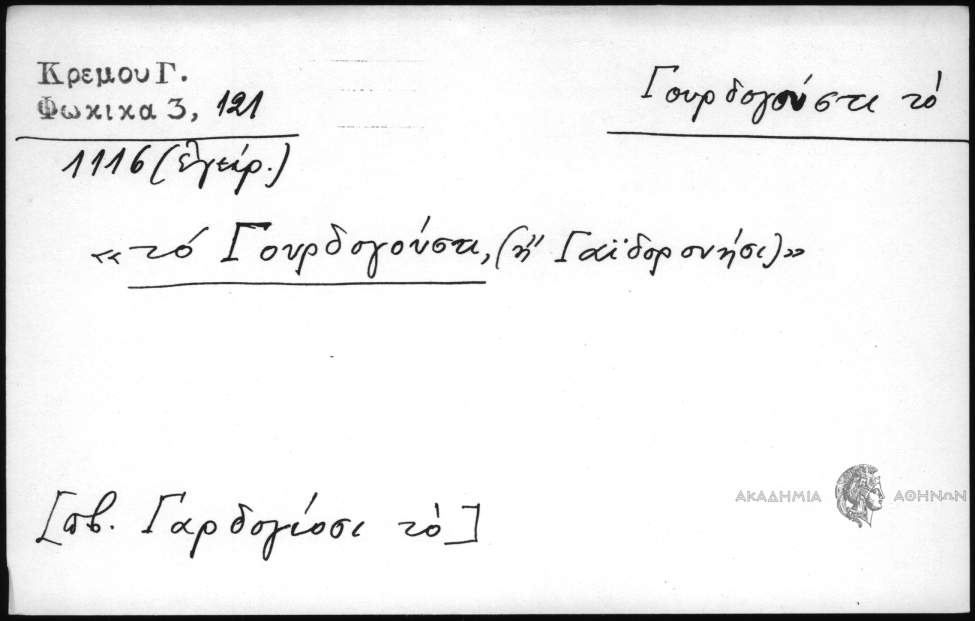 Κρεμου Γ.
Φωκικα 3, 121
Γουρδογούστι τὸ
1116 (ἐγχειρ.)
«τό Γουρδογούστι, (ἤ Γαϊδορονήσι)»
[πβ. Γαρδογιόσι τὸ]
ΑΚΑΔΗΜΙΑ ΑΘΗΝΩΝ